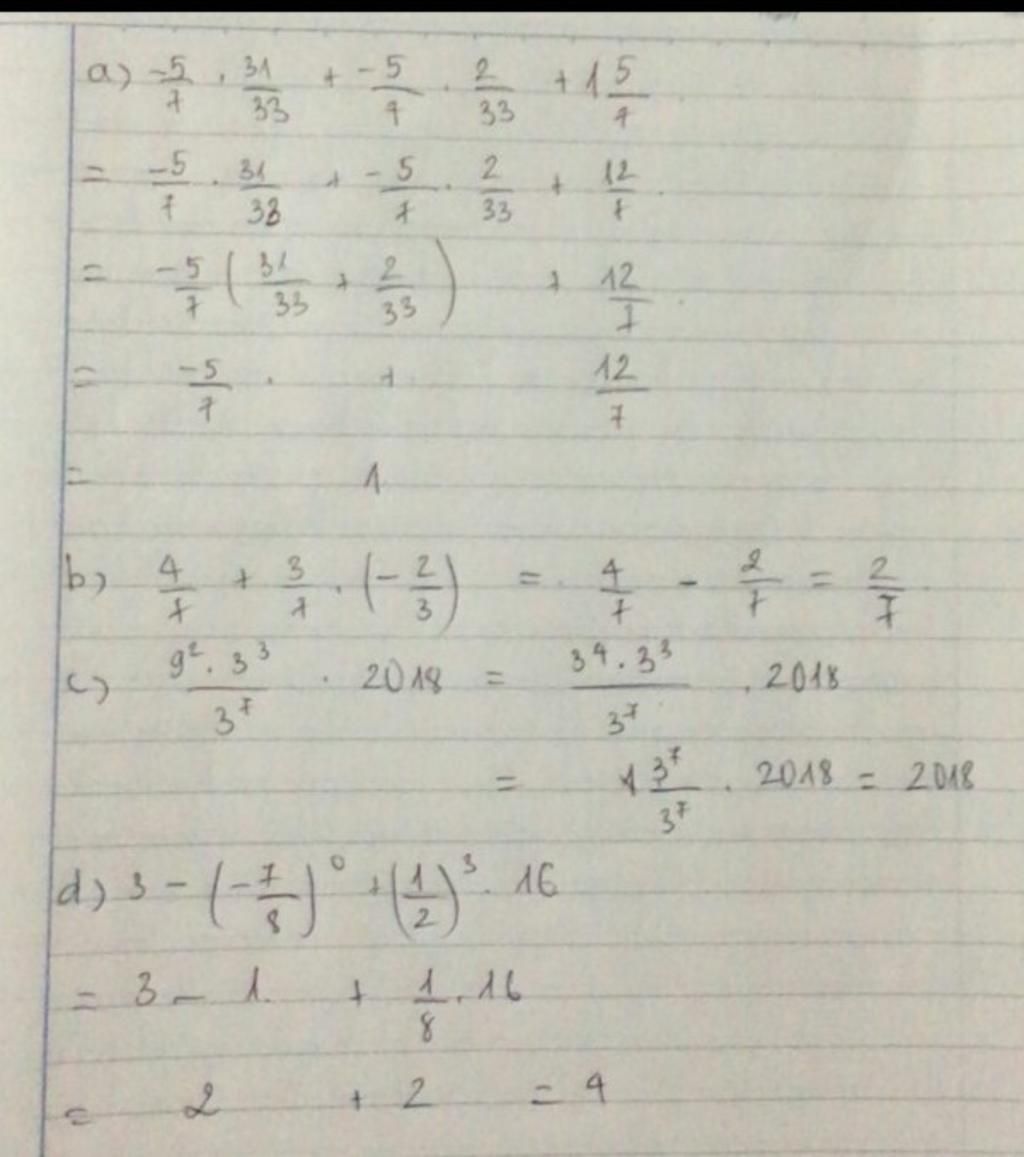 a) -5/7 . 31/33 + -5/7 . 2/33 + 1 5/7
= -5/7 . 31/33 + -5/7 . 2/33 + 12/7
= -5/7 ( 31/33 + 2/33 ) + 12/7
= -5/7 . + 12/7
= 1
b) 4/7 + 3/7 . (-2/3) = 4/7 - 2/7 = 2/7
c) 9² . 3³/3⁷ . 2018 = 3⁴ . 3³/3⁷ . 2018
= 1 3⁷/3⁷ . 2018 = 2018
d) 3 - (-7/8)⁰ + (1/2)³ . 16
= 3 - 1 + 1/8 . 16
= 2 + 2 = 4